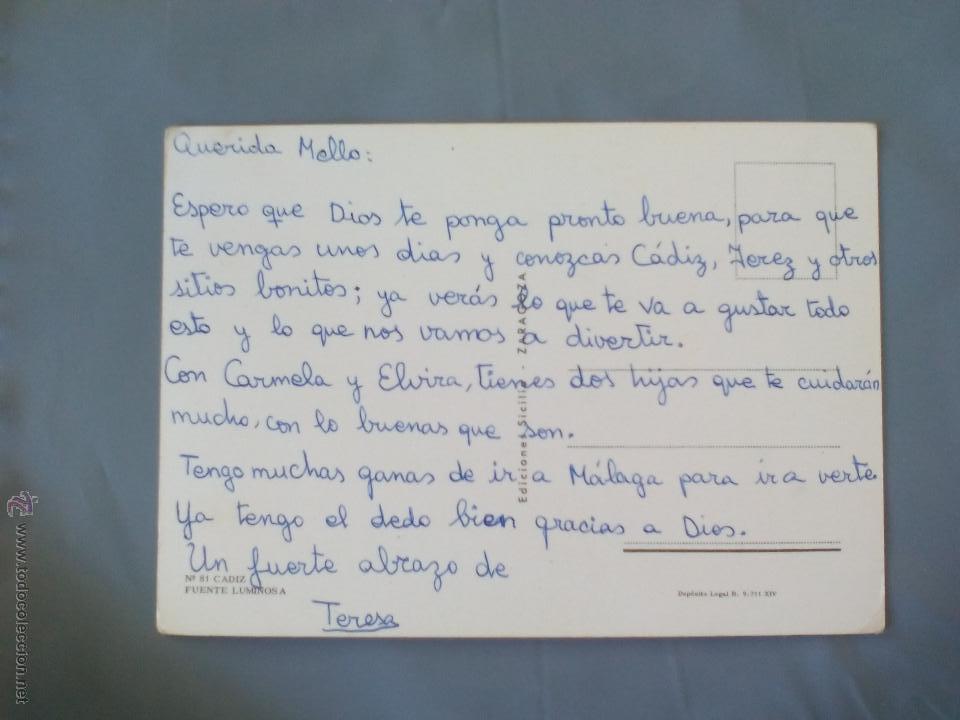 Querida Mello:
Espero que Dios te ponga pronto buena, para que
te vengas unos dias y conozcas Cádiz, Jerez y otros
sitios bonitos; ya verás lo que te va a gustar todo
esto y lo que nos vamos a divertir.
Con Carmela y Elvira, tienes dos hijas que te cuidarán
mucho, con lo buenas que son.
Tengo muchas ganas de ir a Málaga para ir a verte.
Ya tengo el dedo bien gracias a Dios.
Un fuerte abrazo de
Teresa
Nº 81 CADIZ
FUENTE LUMINOSA
Ediciones Sicilia - ZARAGOZA
Depósito Legal B. 9.711 XIV
todocoleccion
www.todocoleccion.net